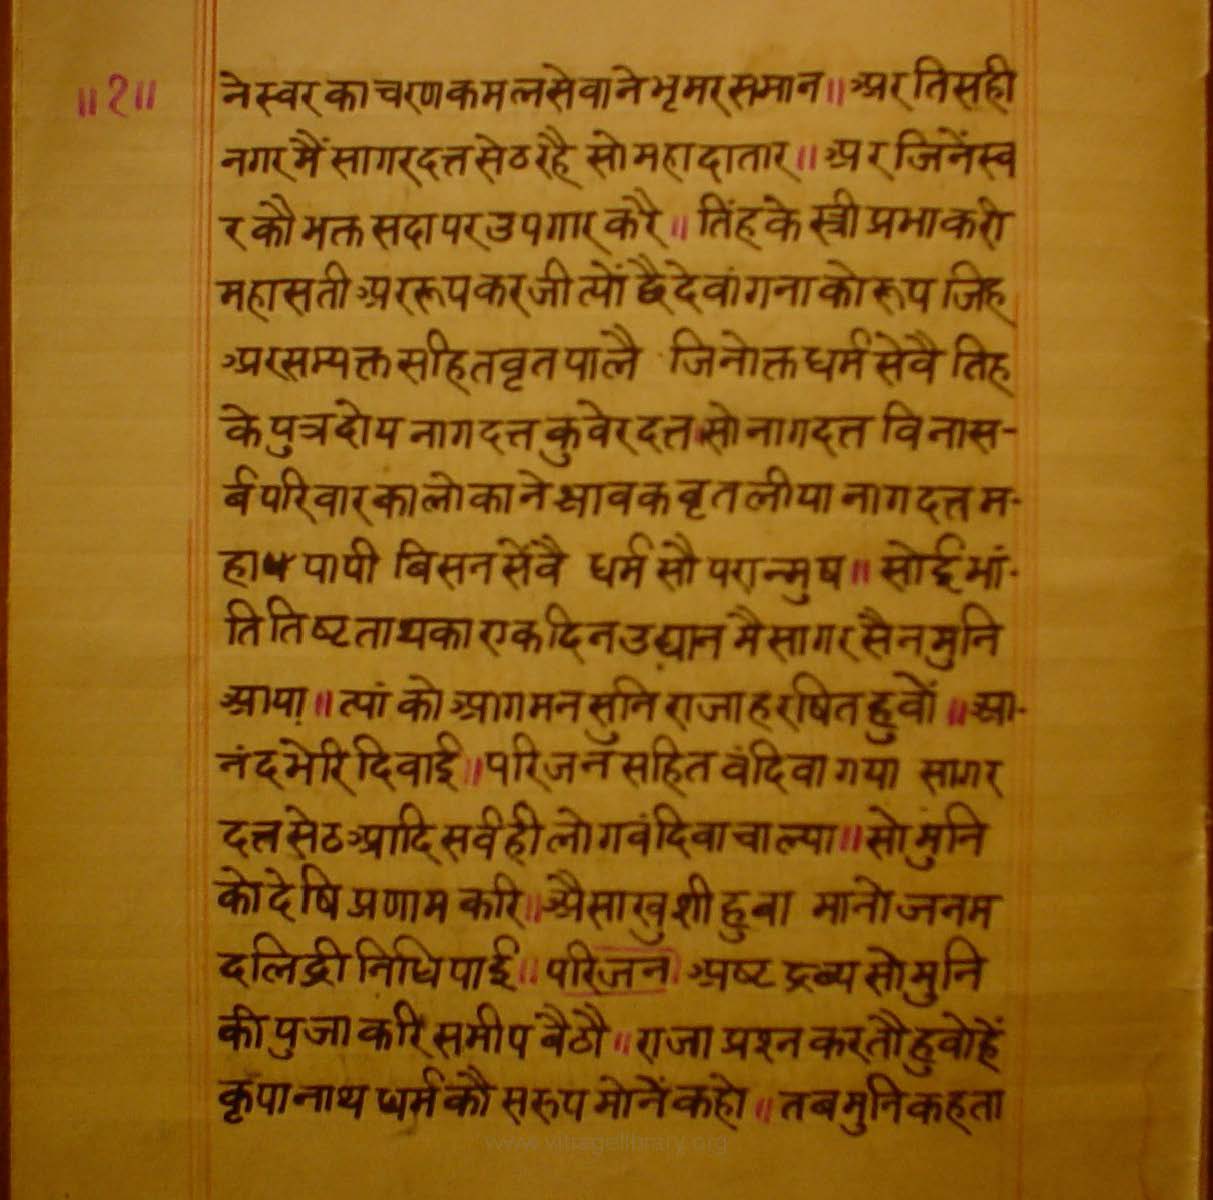 ॥२॥
नेस्वर का चरणकमल सेवाने भृमर समान॥ अर तिसही
नगर मैं सागरदत्त सेठ रहै सो महादातार॥ अर जिनेंस्व
र कौ भक्त सदा पर उपगार करै॥ तिंह के स्त्री प्रभाकरी
महासती अर रूप कर जीत्यों द्वै देवांगना को रूप जिह
अर सम्यक्त सहित वृत पालै जिनोक्त धर्म सेवै तिह
के पुत्र दोय नागदत्त कुवेरदत्त॥ सो नागदत्त विना स-
र्ब परिवार का लोका ने श्रावक वृत लीया नागदत्त म-
हा पापी बिसन सेंवै धर्म सौ परान्मुष॥ सो ई भां-
ति तिष्टता थका एक दिन उद्यान मै सागरसैन मुनि
आया॥ त्यां को आगमन सुनि राजा हरषित हुवों॥ आ-
नंदभेरि दिवाई॥ परिजन सहित वंदिवा गया सागर
दत्त सेठ आदि सर्व ही लोग वंदिवा चाल्या॥ सो मुनि
को देषि प्रणाम करि॥ अैसा खुशी हुवा मानो जनम
दलिद्री निधि पाई॥ परिजन अष्ट द्रव्य सो मुनि
की पुजा करि समीप बैठौ॥ राजा प्रश्न करतौ हुवो हें
कृपानाथ धर्म कौ सरुप मोनें कहो॥ तब मुनि कहता
www.vitragelibrary.org